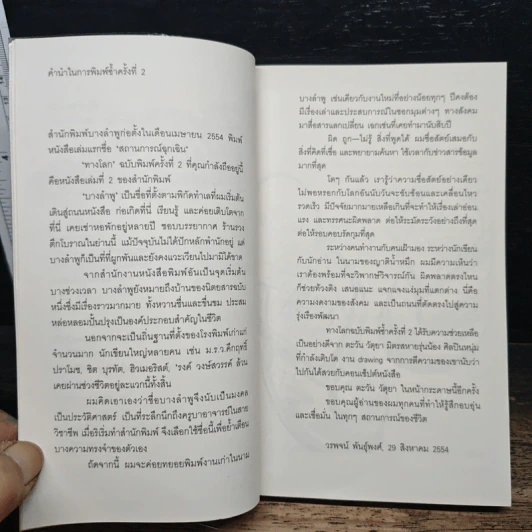 คำนำในการพิมพ์ซ้ำครั้งที่ 2
สำนักพิมพ์บางลำพูก่อตั้งในเดือนเมษายน 2554 พิมพ์
หนังสือเล่มแรกชื่อ "สถานการณ์ฉุกเฉิน"
"ทางโลก" ฉบับพิมพ์ครั้งที่ 2 ที่คุณกำลังถืออยู่นี้
คือหนังสือเล่มที่ 2 ของสำนักพิมพ์
"บางลำพู" เป็นชื่อที่ตั้งตามพิกัดทำเลที่ผมเริ่มต้น
เดินสู่ถนนหนังสือ ก่อเกิดที่นี่ เรียนรู้ และค่อยเติบโตจาก
ที่นี่ เคยเช่าหอพักอยู่หลายปี ชอบบรรยากาศ ร้านรวง
ตึกโบราณในย่านนี้ แม้ปัจจุบันไม่ได้ปักหลักพำนักอยู่ แต่
บางลำพูก็เป็นที่ที่ผูกพันและยังคงแวะเวียนไปมามิได้ขาด
จากสำนักงานหนังสือพิมพ์อันเป็นจุดเริ่มต้น
บางช่วงเวลา บางลำพูยังหมายถึงบ้านของนิตยสารฉบับ
หนึ่งซึ่งมีเรื่องราวมากมาย ทั้งหวานชื่นและขื่นขม ประสม
หล่อหลอมปั้นปรุงเป็นองค์ประกอบสำคัญในชีวิต
นอกจากจะเป็นถิ่นฐานที่ตั้งของโรงพิมพ์เก่าแก่
จำนวนมาก นักเขียนใหญ่หลายคน เช่น ม.ร.ว.คึกฤทธิ์
ปราโมช, ชิต บุรทัต, ฮิวเมอริสต์, 'รงค์ วงษ์สวรรค์ ล้วน
เคยผ่านช่วงชีวิตอยู่ละแวกนี้ทั้งสิ้น
ผมคิดเอาเองว่าชื่อบางลำพูจึงนับเป็นมงคล
เป็นประวัติศาสตร์ เป็นที่ระลึกนึกถึงครูบาอาจารย์ในสาย
วิชาชีพ เมื่อริเริ่มทำสำนักพิมพ์ จึงเลือกใช้ชื่อนี้เพื่อย้ำเตือน
บางความทรงจำของตัวเอง
ถัดจากนี้ ผมจะค่อยทยอยพิมพ์งานเก่าในนาม
บางลำพู เช่นเดียวกับงานใหม่ที่อย่างน้อยทุกๆ ปีคงต้อง
มีเรื่องเล่าและประสบการณ์ในซอกมุมต่างๆ ทางสังคม
มาสื่อสารแลกเปลี่ยน เอกเช่นที่เคยทำมานับสิบปี
ผิด ถูก—ไม่รู้ สิ่งที่พูดได้ ผมซื่อสัตย์เสมอกับ
สิ่งที่คิดที่เชื่อ และพยายามค้นหา ใช้เวลากับข่าวสารข้อมูล
มากที่สุด
ใดๆ กันแล้ว เรารู้ว่าความซื่อสัตย์อย่างเดียว
ไม่พอหรอกกับโลกอันนับวันจะซับซ้อนและเคลื่อนไหว
รวดเร็ว มีปัจจัยมากมายเหลือเกินที่จะทำให้เรื่องเล่าอ่อน
แรง และทรรศนะผิดพลาด ต่อให้ระมัดระวังอย่างถึงที่สุด
ต่อให้รอบคอบรัดกุมที่สุด
ระหว่างคนทำงานกับคนเฝ้ามอง ระหว่างนักเขียน
กับนักอ่าน ในนามของญาติน้ำหมึก ผมมีความเห็นว่า
เราต้องพร้อมที่จะวิพากษ์วิจารณ์กัน ผิดพลาดตรงไหน
ก็ช่วยท้วงติง เสนอแนะ แจกแจงแง่มุมที่แตกต่าง นี่คือ
ความงดงามของสังคม และเป็นถนนที่ตัดตรงไปสู่ความ
รุ่งเรืองพัฒนา
ทางโลกฉบับพิมพ์ซ้ำครั้งที่ 2 ได้รับความช่วยเหลือ
เป็นอย่างดีจาก ตะวัน วัตุยา มิตรสหายรุ่นน้อง ศิลปินหนุ่ม
ที่กำลังเติบโต งาน drawing จากการตีความของเขานับว่า
ไปกันได้สวยกับคอนเซ็ปต์หนังสือ
ขอบคุณ ตะวัน วัตุยา ในหน้ากระดาษนี้อีกครั้ง
ขอบคุณผู้อ่านของผมทุกคนที่ทำให้รู้สึกอบอุ่น
และเชื่อมั่น ในทุกๆ สถานการณ์ของชีวิต
วรพจน์ พันธุ์พงศ์, 29 สิงหาคม 2554